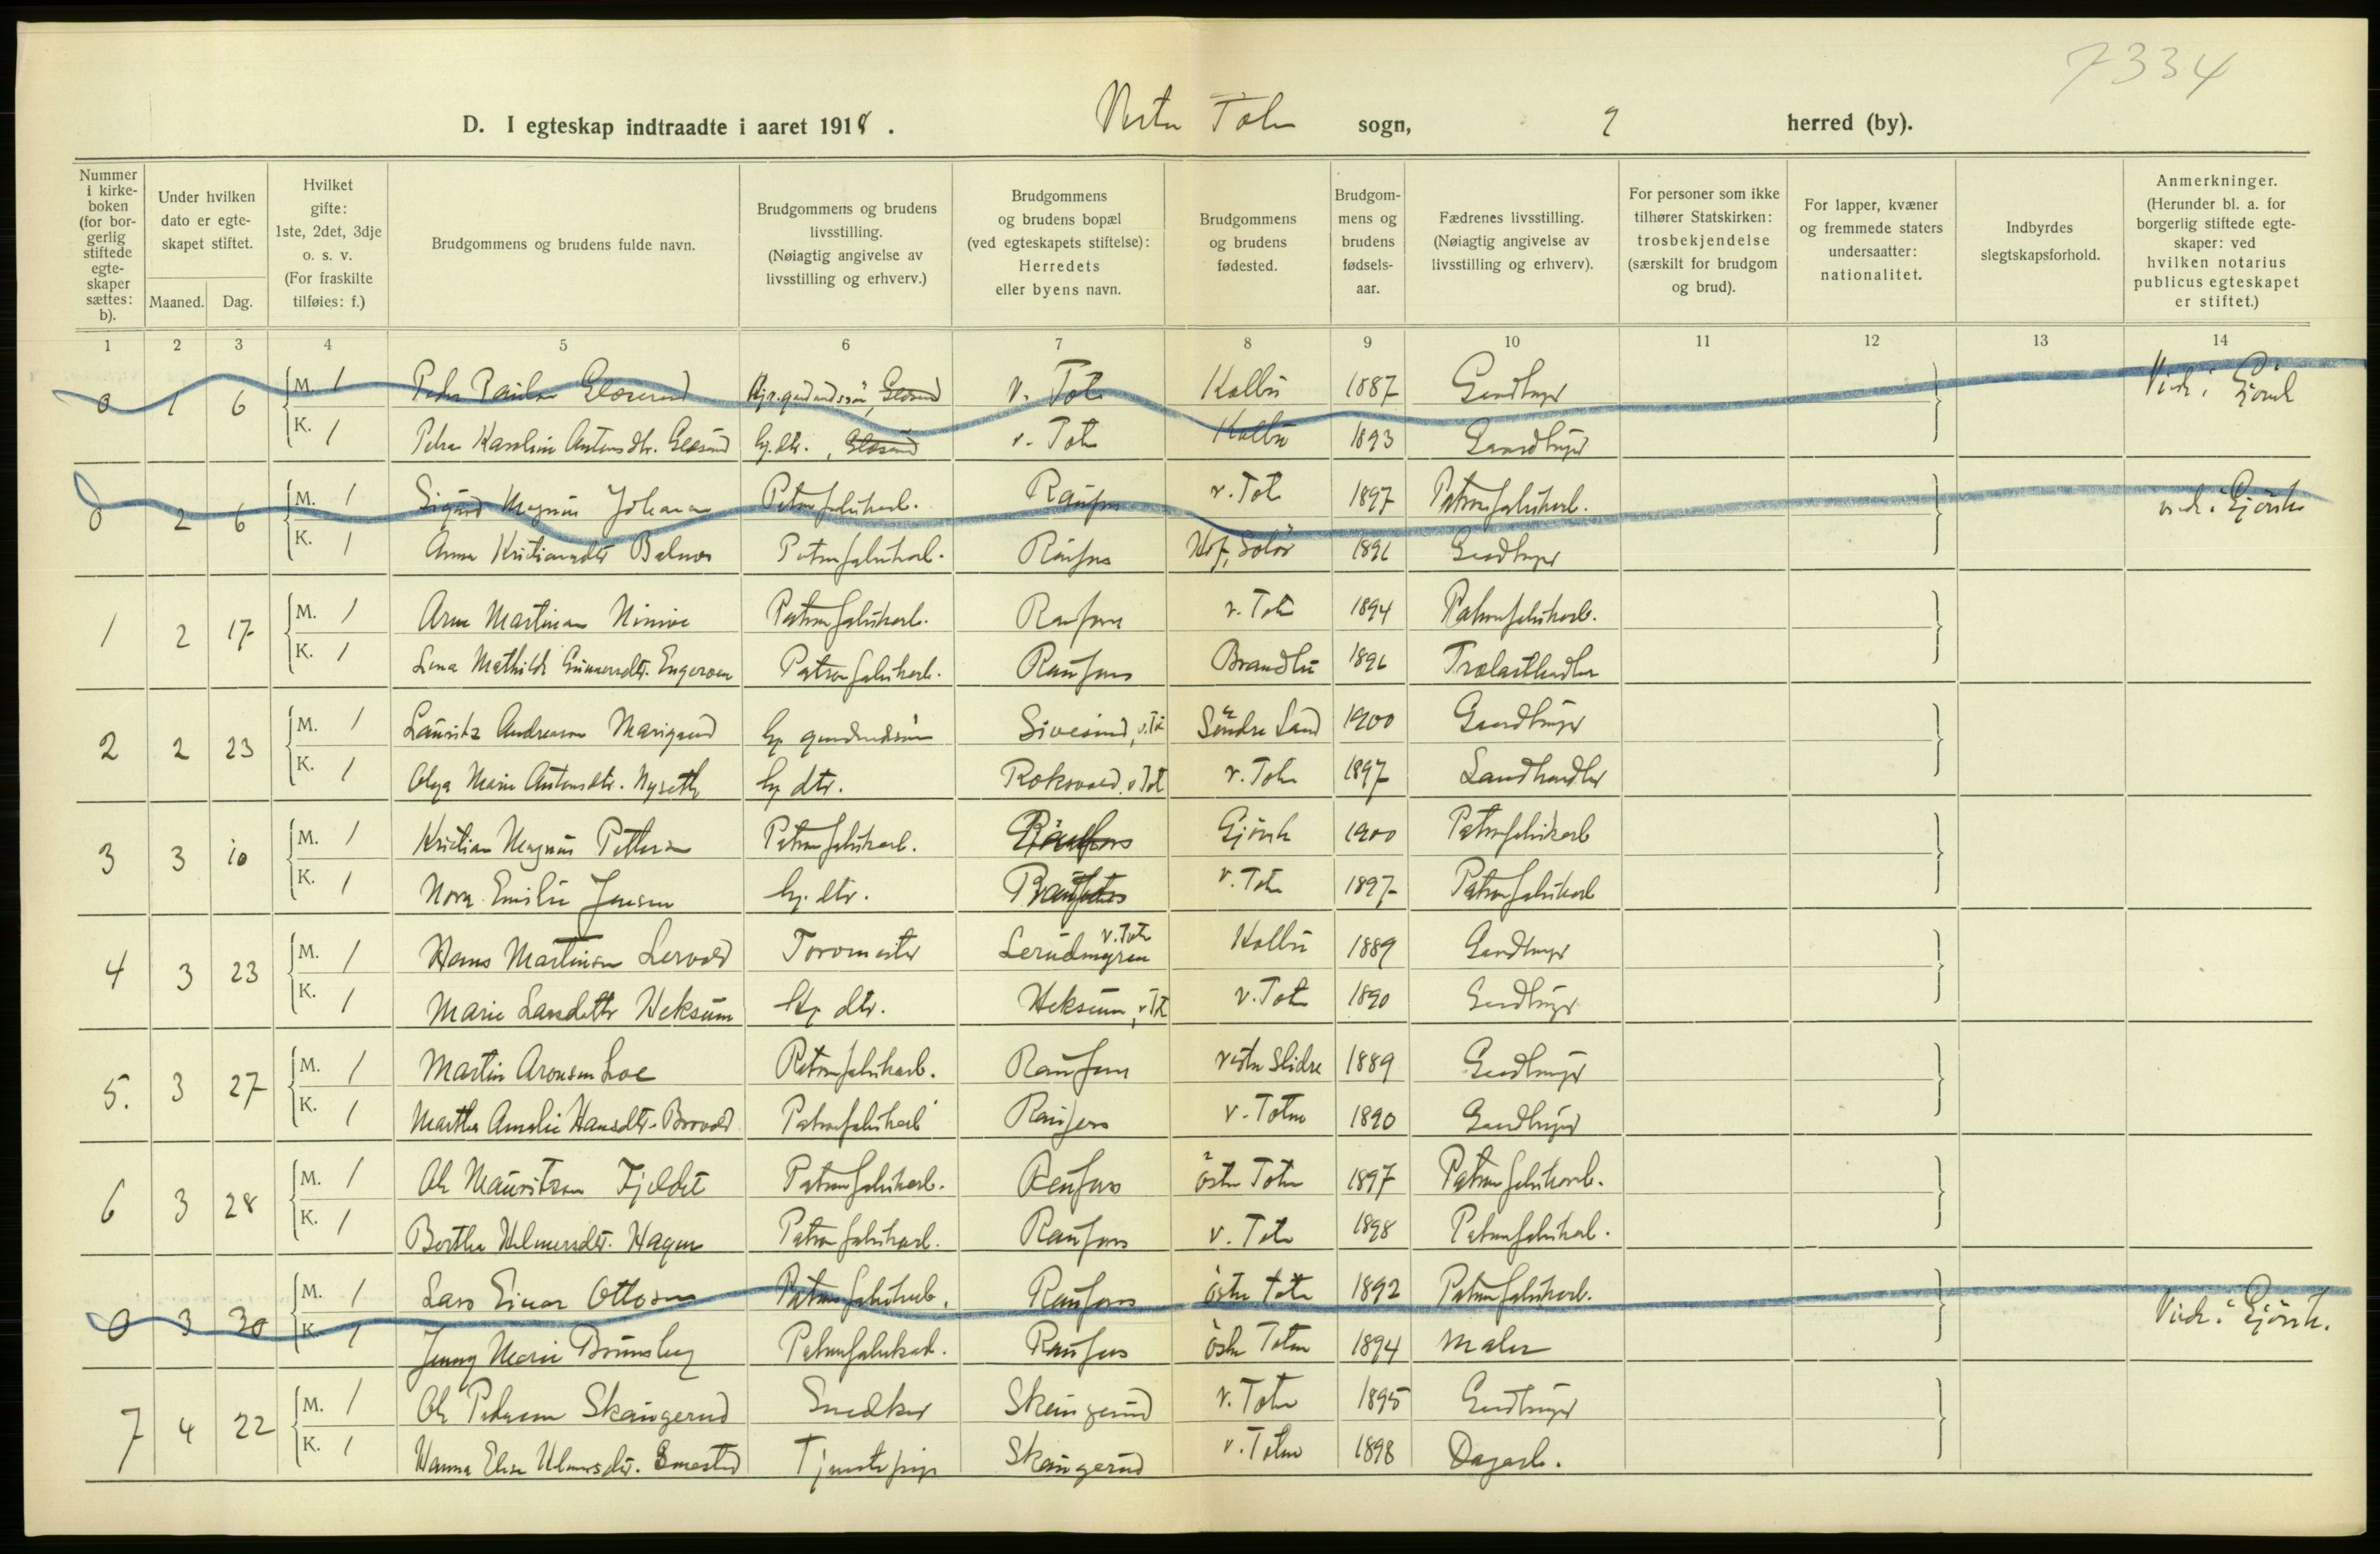 7334
D. I egteskap indtraadte i aaret 1918. Vestre Toten sogn, herred (by).
Nummer i kirkeboken (for borgerlig stiftede egteskaper sættes: b).
Under hvilken dato er egteskapet stiftet.
Maaned. Dag.
Hvilket gifte: 1ste, 2det, 3dje o. s. v. (For fraskilte tilføies: f.)
Brudgommens og brudens fulde navn.
Brudgommens og brudens livsstilling. (Nøiagtig angivelse av livsstilling og erhverv.)
Brudgommens og brudens bopæl (ved egteskapets stiftelse): Herredets eller byens navn.
Brudgommens og brudens fødested.
Brudgommens og brudens fødselsaar.
Fædrenes livsstilling. (Nøiagtig angivelse av livsstilling og erhverv).
For personer som ikke tilhører Statskirken: trosbekjendelse (særskilt for brudgom og brud).
For lapper, kvæner og fremmede staters undersaatter: nationalitet.
Indbyrdes slegtskapsforhold.
Anmerkninger. (Herunder bl. a. for borgerlig stiftede egteskaper: ved hvilken notarius publicus egteskapet er stiftet.)
1 2 3 4 5 6 7 8 9 10 11 12 13 14
0 1 6 M. 1 Peder Paulsen v. Toten Kolbu 1887 Gardbruger Viede i Gjövik
K. 1 Petra Karoline Antonsdtr. hj. dtr. v. Toten Kolbu 1893 Gaardbruger
0 2 6 M. 1 Sigurd Magnus Johansen Patronfabrikarb. Raufoss v. Toten 1897 Patronfabrikarb. viede i Gjövik
K. 1 Anna Kristiansdtr Patronfabrikarb. Raufoss Hof, Solör 1896 Gardbruger
1 2 17 M. 1 Arne Martinsen Ninive Patronfabrikarb. Raufoss v. Toten 1894 Patronfabrikarb.
K. 1 Lina Mathilde Gunnersdtr. Engeroen Patronfabrikarb. Raufoss Brandbu 1896 Trælasthandler
2 2 23 M. 1 Lauritz Andreasen hj. Sivesind, v. Tot Söndre Land 1900 Gaardbruger
K. 1 Olga Marie Antonsdtr. Nyseth hj dtr. Roksvold, v Tot v. Toten 1897 Landhandler
3 3 10 M. 1 Kristian Magnus Pettersen Patronfabrikarb. Raufoss Gjövik 1900 Patronfabrikarb
K. 1 Nora Emilie Jensen hj. dtr. Raufoss v. Toten 1897 Patronfabrikarb
4 3 23 M. 1 Hans Martinsen Lervold Torvmester Lerudmyren v. Toten Kolbu 1889 Gardbruger
K. 1 Marie Larsdatter Heksum Hj. dtr. Heksum, v Tot v. Toten 1890 Gardbruger
5. 3 27 M. 1 Martin Aronsen Loe Patronfabrikarb. Raufoss Vestre Slidre 1889 Gardbruger
K. 1 Martha Amalie Hansdtr. Brovold Patronfabrikarb Raufoss v. Toten 1890 Gardbruger
6 3 28 M. 1 Ole Mauritzen Fjeldet Patronfabrikarb. Raufoss östre Toten 1897 Patronfabrikarb.
K. 1 Berthe Helmersdtr. Hagen Patronfabrikarb. Raufoss v. Toten 1898 Patronfabrikarb.
0 3 30 M. 1 Lars Einar Ottosen Patronfabrikarb. Raufoss östre Toten 1892 Patronfabrikarb. Viede i Gjövik.
K. 1 Jenny Marie Patronfabrikarb. Raufoss östre Toten 1894 Maler
7 4 22 M. 1 Ole Pedersen Skaugerud Snedker Skaugerud v. Toten 1895 Gardbruger
K. 1 Hanna Elise Smestad Tjenestepige Skaugerud v. Toten 1898 Dagarb.